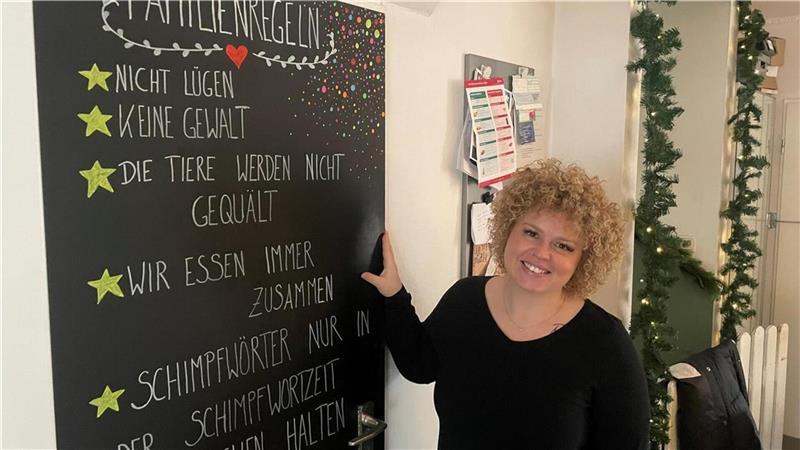 FAMILIENREGELN
NICHT LÜGEN
KEINE GEWALT
DIE TIERE WERDEN NICHT
GEQUÄLT
WIR ESSEN IMMER
ZUSAMMEN
SCHIMPFWÖRTER NUR IN
DER SCHIMPFWORTZEIT
HALTEN